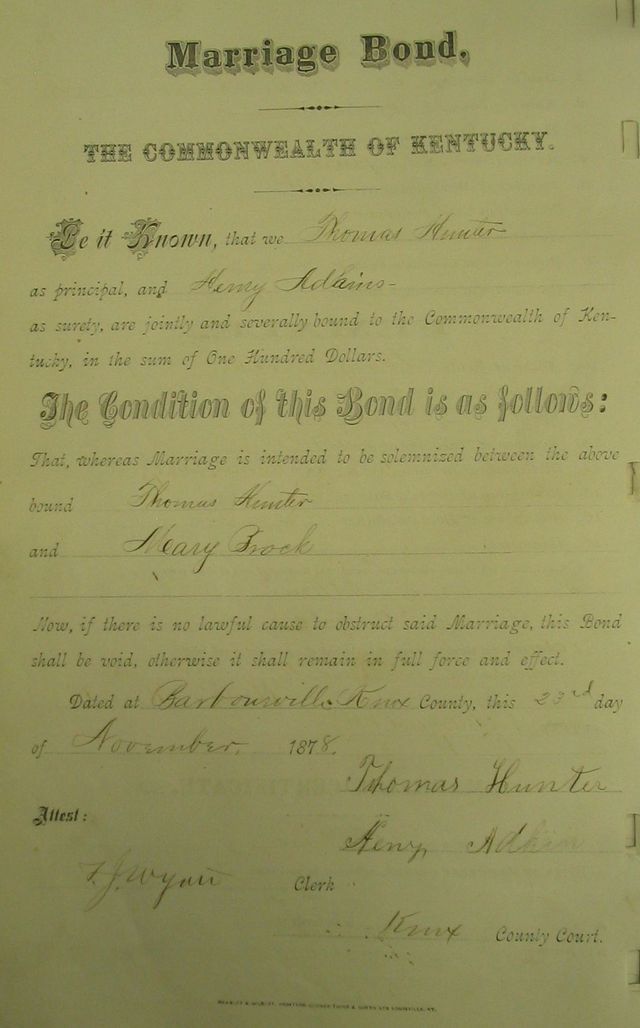 Marriage Bond.
THE COMMONWEALTH OF KENTUCKY.
Be it Known, that we Thomas Hunter
as principal, and Henry Adkins
as surety, are jointly and severally bound to the Commonwealth of Ken-
tucky, in the sum of One Hundred Dollars.
The Condition of this Bond is as follows:
That, whereas Marriage is intended to be solemnized between the above
bound Thomas Hunter
and Mary Brock
Now, if there is no lawful cause to obstruct said Marriage, this Bond
shall be void, otherwise it shall remain in full force and effect.
Dated at Barbourville Knox County, this 23rd day
of November. 1878.
Thomas Hunter
Attest:
Henry Adkin
Clerk
Knox County Court.